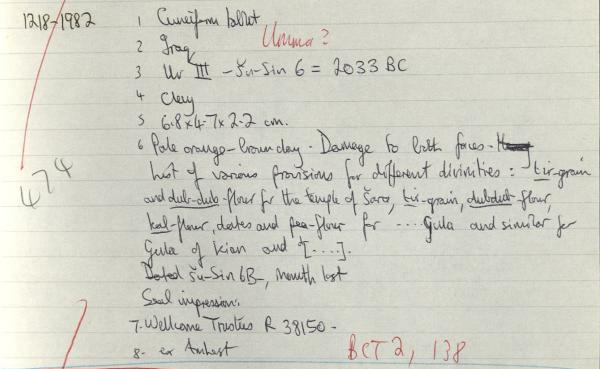 1218-1982 1 Cuneiform tablet
2 Iraq Umma?
3 Ur III - Šu-Sin 6 = 2033 BC
4 Clay
5 6.8 x 4.7 x 2.2 cm.
6 Pale orange-brown clay. Damage to both faces -
List of various provisions for different divinities: tir-grain
and dub-dub-flour for the temple of Šara, tir-grain, dubdub-flour,
kal-flour, dates and pea-flour for .... Gula and similar for
Gula of Kian and [....].
474
Dated Šu-Sin 6B-, month lost
Seal impression.
7. Wellcome Trustees R 38150 -
8- ex Amherst
BCT 2, 138